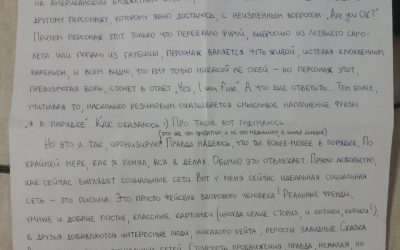 на американский
другому персонажу, которому явно досталось, с неизменным вопросом "Are you OK?"
Причем персонаж этот только что переехало фурой, выбросило из летящего само-
лета или попало из гаубицы, персонаж валяется чуть живой, истекая клюквенным
вареньем, и всем видно, что ему точно никакой не окей - но персонаж этот,
превозмогая боль, стонет в ответ "Yes, I am fine". А что еще ответить... Тем более,
учитывая то, насколько резиновым оказывается смысловое наполнение фразы
"я в порядке". Как оказалось :) Про такое вот подумалось...
Но это я так, иронизирую. Правда надеюсь, что ты более-менее в порядке. По
крайней мере, как я понял, вся в делах. Обычно это отвлекает. Прямо любопытно,
как сейчас выглядят социальные сети. Вот у меня сейчас идеальная социальная
сеть - это письма. Это просто фейсбук здорового человека! Реальные френды,
умные и добрые посты, классные картинки (иногда целые сторис, и котики, котики!),
в друзья добавляются интересные люди, никакого хейта, репосты
социальных сетей. правда, немалая, но